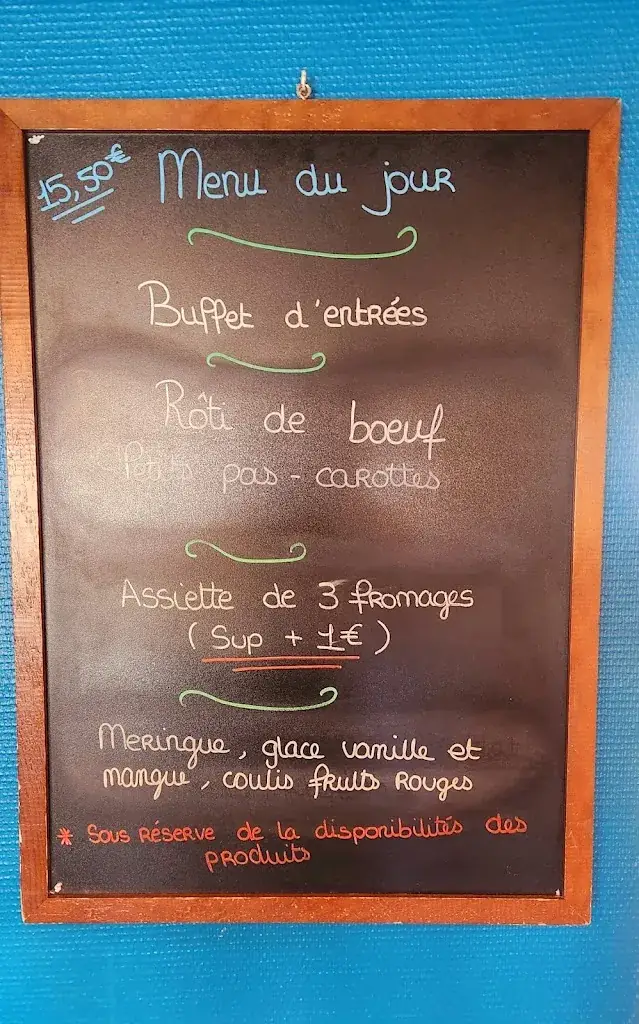 15,50€ Menu du jour
Buffet d'entrées
Rôti de boeuf
Petits pois - carottes
Assiette de 3 fromages
( Sup + 1€ )
Meringue, glace vanille et
mangue, coulis fruits rouges
* Sous réserve de la disponibilités des
produits